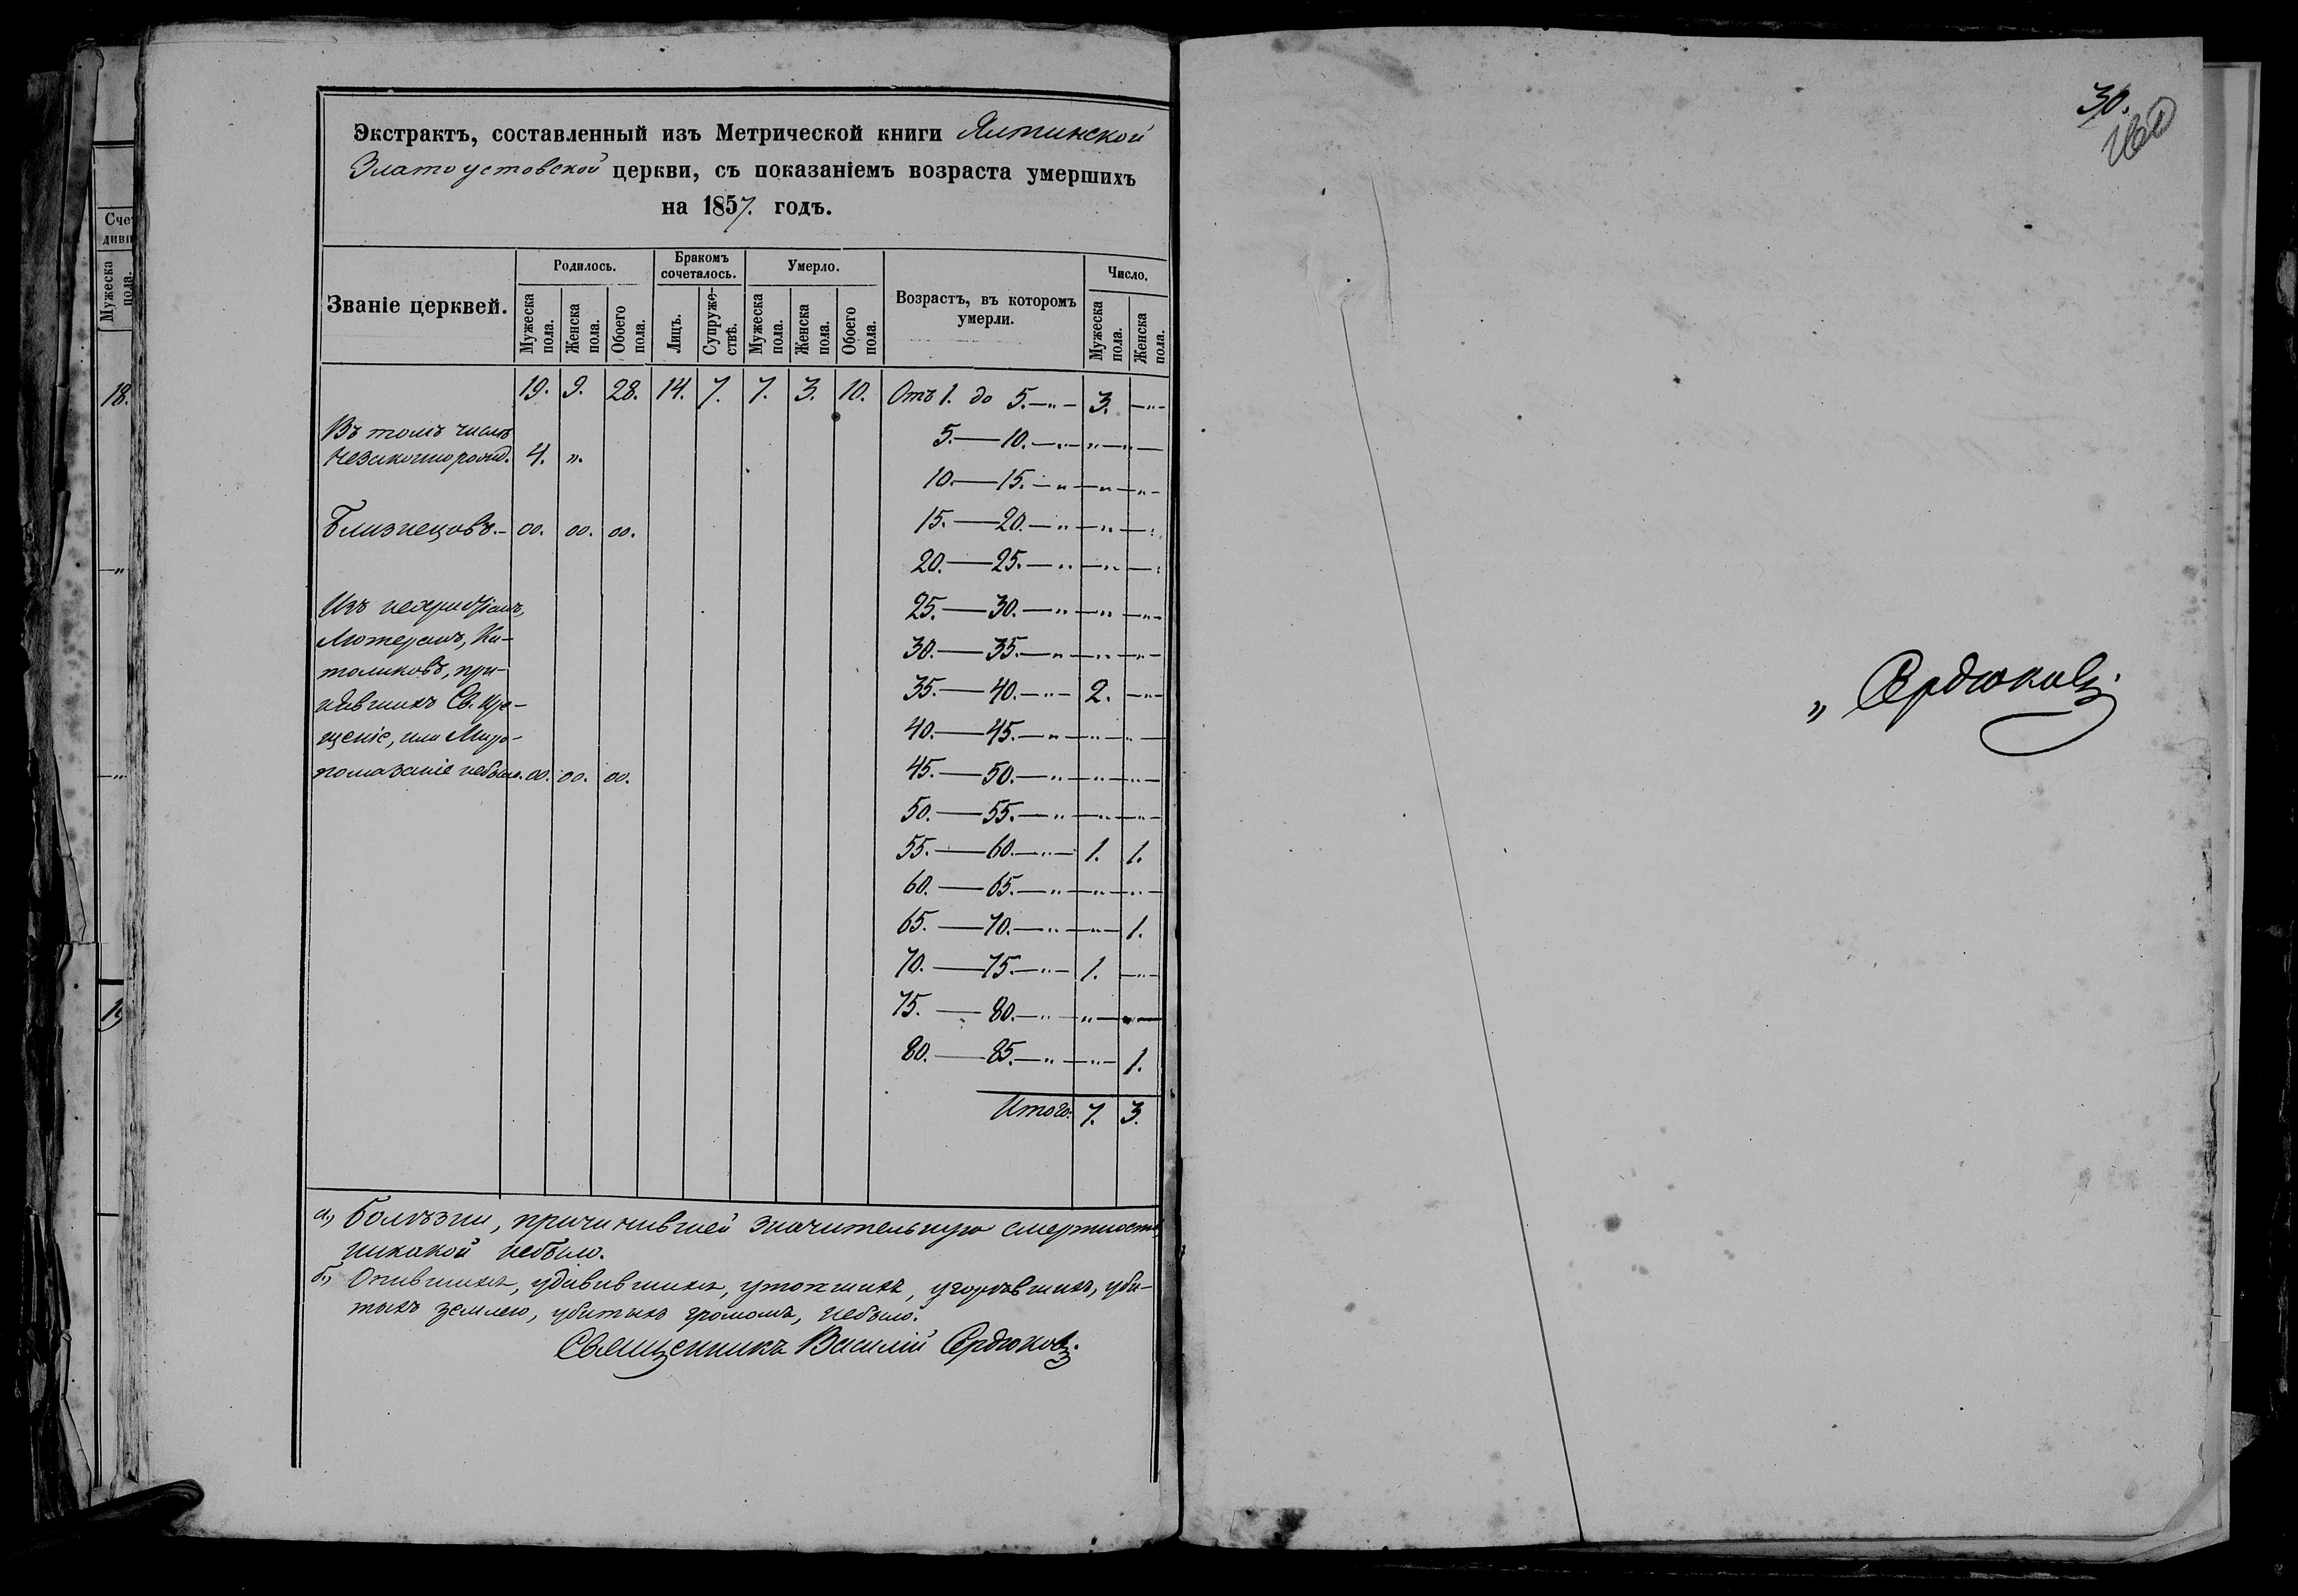 Счет
дивш
Мужеска
пола.
18.
—„
—„
19
Экстрактъ, составленный изъ Метрической книги Ялтинской
Златоустовской церкви, съ показаніемъ возраста умершихъ
на 1857. годъ.
Званіе церквей.
Родилось.
Мужеска пола.
Женска пола.
Обоего пола.
Бракомъ сочеталось.
Лицъ.
Супружествъ.
Умерло.
Мужеска пола.
Женска пола.
Обоего пола.
Возрастъ, въ которомъ умерли.
Число.
Мужеска пола.
Женска пола.
19. 9. 28. 14. 7. 7. 3. 10. Отъ 1. до 5.—„— 3. —„—
Въ томъ числѣ
незаконнорожд. 4. „.
5.—10.—„—„—„—
10.—15.—„—„—„—
Близнецовъ.— 00. 00. 00.
15.—20.—„—„—„
20.—25.—„—„—„
Изъ нехристіанъ,
25.—30.—„—„—„—
Лютеранъ, Ка-
30.—35.—„—„—„—
толиковъ, при-
35.—40.—„— 2. —„—
нявшихъ Св. Кре-
40.—45.—„—„—„—
щеніе, или Миро-
помазаніе небыло. 00. 00. 00.
45.—50.—„—„—„—
50.—55.—„—„—„—
55.—60.—„— 1. 1.
60.—65.—„—„—„—
65.—70.—„—„— 1.
70.—75.—„— 1. —„—
75.—80.—„—„—„—
80.—85.—„—„— 1.
Итого: 7. 3.
а.) Болѣзни, причинившей значительную смертность,
никакой небыло.
б.) Опившихъ, удавившихъ, утопшихъ, угорѣвшихъ, уби-
тыхъ землею, убитыхъ громомъ, небыло.
Священникъ Василій Сердюковъ.
30.
„ Сердюковъ.